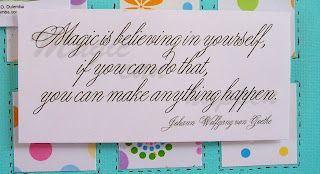 O. Dutemba
Magic is believing in yourself,
if you can do that,
you can make anything happen.
Johann Wolfgang von Goethe